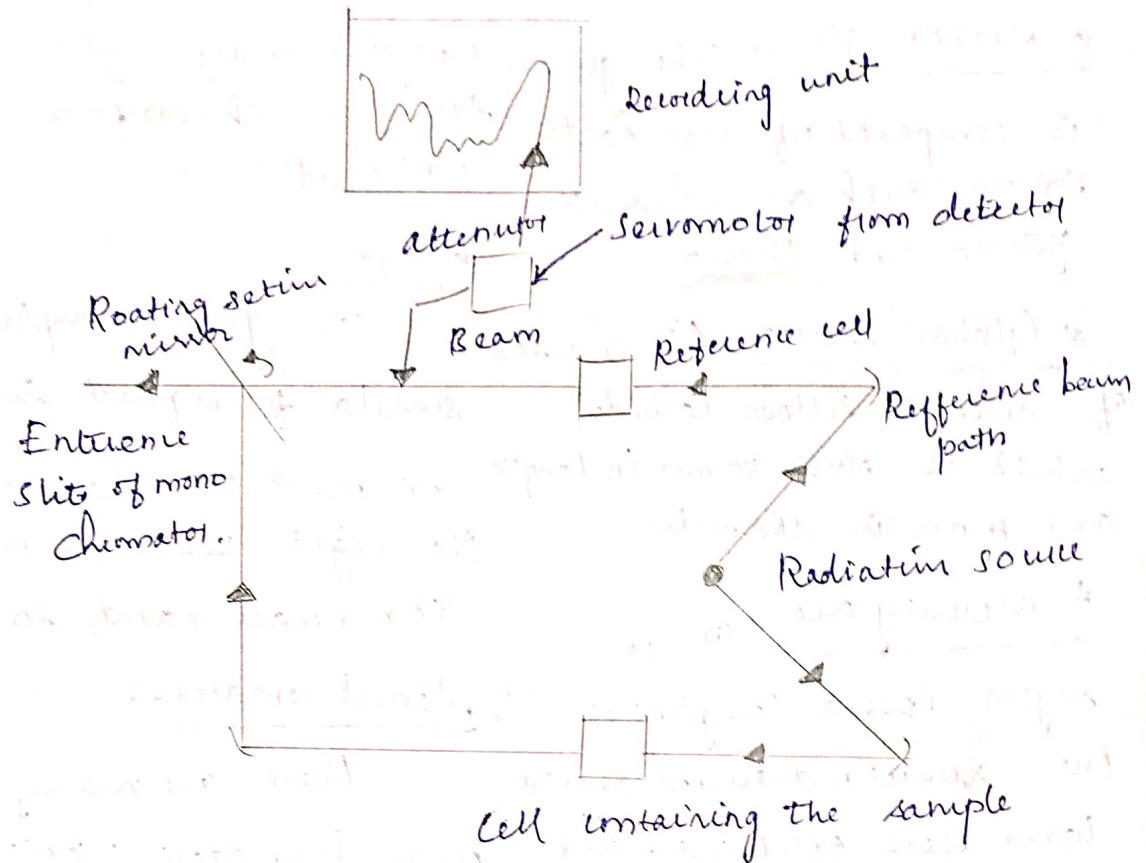 Recording unit
attenutor
Servomotor from detector
Roating
mirror
Beam
Reference cell
Refference beam
path
Entrence
Slits of mono
Chromator.
Radiation source
Cell containing the sample